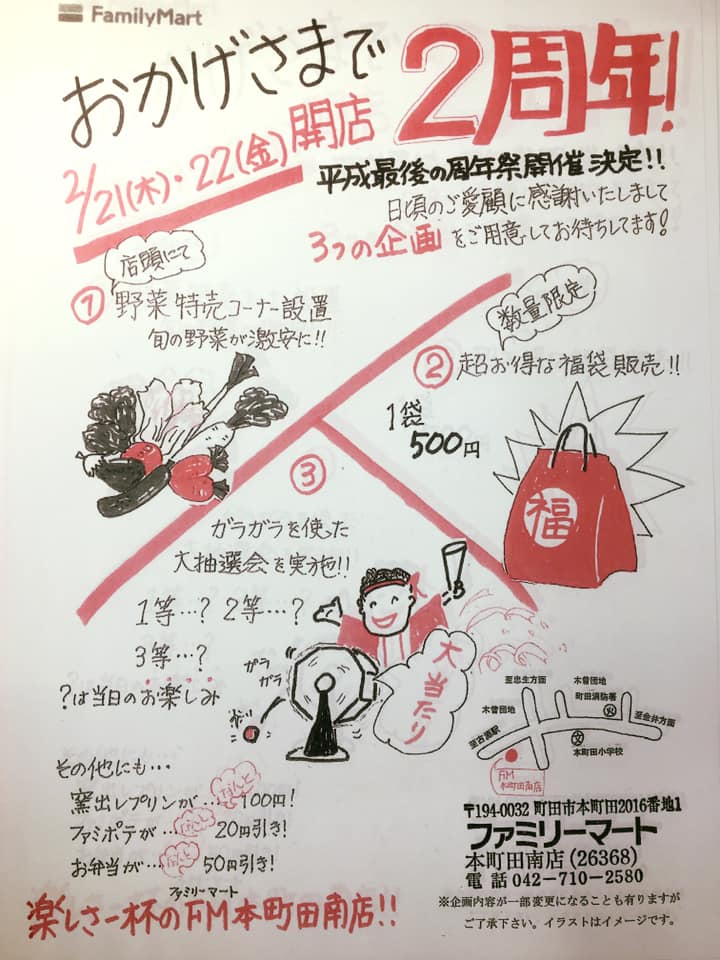 FamilyMart
おかげさまで
2周年!
2/21(木)・22(金)開店
平成最後の周年祭開催決定!!
日頃のご愛顧に感謝いたしまして
3つの企画をご用意してお待ちしてます!
店頭にて
① 野菜特売コーナー設置
旬の野菜が激安に!!
数量限定
② 超お得な福袋販売!!
1袋
500円
福
③
ガラガラを使った
大抽選会を実施!!
1等…? 2等…?
3等…?
?は当日のお楽しみ
ガラ
ガラ
大当たり
その他にも…
窯出しプリンが…なんと100円!
ファミポテが…なんと20円引き!
お弁当が…なんと50円引き!
ファミリーマート
楽しさ一杯のFM本町田南店!!
至忠生方面
木曽団地
町田消防署
木曽団地
火
至金井方面
至古淵駅
文
本町田小学校
FM
本町田南店
〒194-0032 町田市本町田2016番地1
ファミリーマート
本町田南店(26368)
電話 042-710-2580
※企画内容が一部変更になることも有りますが
ご了承下さい。イラストはイメージです。